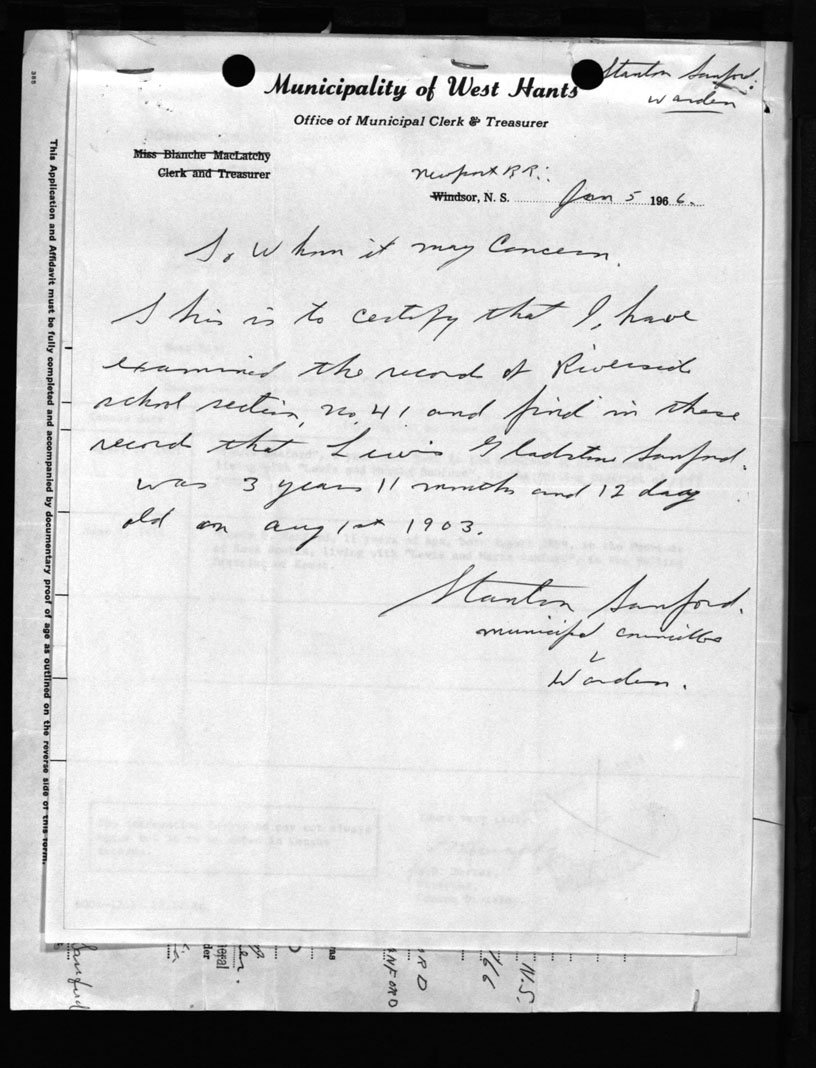 Stanton Sanford.
Warden
Municipality of West Hants
Office of Municipal Clerk & Treasurer
Miss Blanche MacLatchy
Clerk and Treasurer
Newport R R.
Windsor, N. S. Jan 5 1966.
To Whom it may Concern.
This is to certify that I, have
examined the record of Riverside
school section, no, 41 and find in these
record that Lewis Gladstone Sanford.
was 3 years 11 months and 12 days
old on Aug 1st 1903.
Stanton Sanford.
municipal councillor
Warden.
This Application and Affidavit must be fully completed and accompanied by documentary proof of age as outlined on the reverse side of this form.
Sanford
N.S.